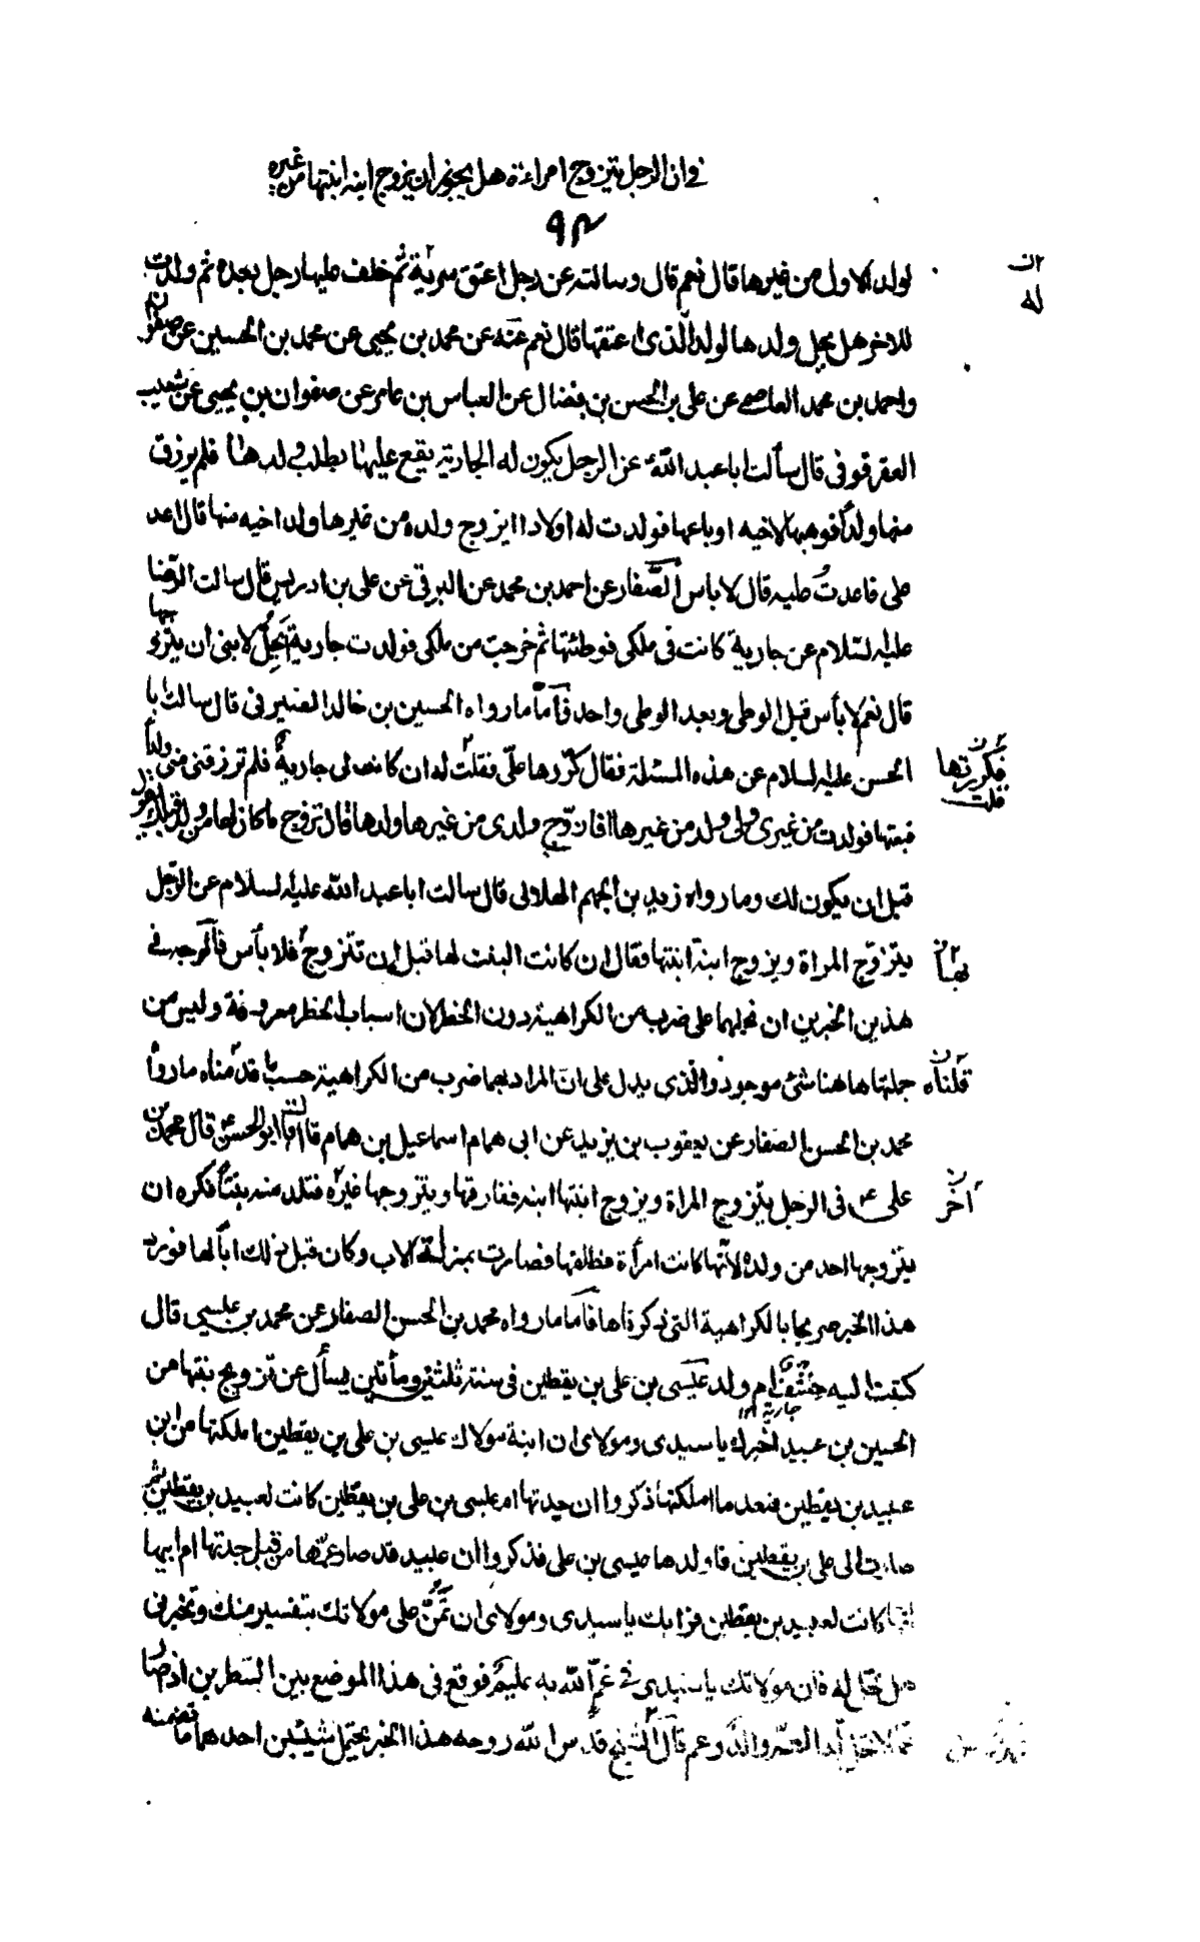 في ان الرجل يتزوج امراءة هل يجوز ان يزوج ابنه ابنتها من غيره
٩٣
لولد الاول من غيرها قال نعم قال وسالته عن رجل اعتق سرية ثم خلف عليها رجل بعده ثم ولدت
ن له
للاخر هل يحل ولدها لولد الذى اعتقها قال نعم عنه عن محمد بن يحيى عن محمد بن الحسين عن صفوان
واحمد بن محمد العاصمى عن على بن الحسن بن فضال عن العباس بن عامر عن صفوان بن يحيى عن شعيب
العقرقوفى قال سألت ابا عبد الله ع عن الرجل يكون له الجارية يقع عليها يطلب ولدها فلم يرزق
منها ولدًا فوهبها لاخيه او باعها فولدت له اولادا ايزوج ولده من غيرها ولد اخيه منها قال اعد
على فاعدت عليه قال لا باس الصّفار عن احمد بن محمد عن البرقى عن على بن ادريس قال سالت الرّضا
عليه السّلام عن جارية كانت فى ملكى فوطئتها ثم خرجت من ملكى فولدت جارية يحلّ لابنى ان يتزوجها
قال نعم لا بأس قبل الوطى وبعد الوطى واحد فَأَمّا ما رواه الحسين بن خالد الصيرفى قال سالت ابا
الحسن عليه السلام عن هذه المسئلة فقال كرّرها علىّ فقلت له ان كانت لى جارية فلم ترزق منى ولدًا
فكررتها ن
قلت
فبعتها فولدت من غيرى ولى ولد من غيرها افازوّج ولدى من غيرها ولدها قال تزوج ما كان لها من ولد قبلك يقول
قبل ان يكون لك وما رواه زيد بن الجهم الهلالى قال سالت ابا عبد الله عليه السلام عن الرّجل
يتزوّج المراة ويزوج ابنه ابنتها فقال ان كانت البنت لها قبل ان تتزوج فلا بأس فالوجه فى
بها ن
هذين الخبرين ان نحملهما على ضرب من الكراهية دون الحظر لان اسباب الحظر معروفة وليس من
جملتها هاهنا شئ موجود والّذى يدل على انّ المراد بهما ضرب من الكراهية حسب ما قدمناه ما رواه
قلناه ن
محمد بن الحسن الصفار عن يعقوب بن يزيد عن ابى همام اسماعيل بن همام قال قال ابو الحسن ع قال محمد بن
على ع فى الرّجل يتزوج المراة ويزوج ابنتها ابنه ففارقها ويتزوجها غيره فتلد منه بنتًا فكره ان
آخر ن
يتزوجها احد من ولده لانّها كانت امرأة فطلقها فصارت بمنزلة الاب وكان قبل ذلك ابًا لها فورد
هذا الخبر صريحا بالكراهية التى ذكرناها فَأَمّا ما رواه محمد بن الحسن الصفار عن محمد بن عيسى قال
كتبت اليه خشف ام ولد عيسى بن على بن يقطين فى سنة ثلث ومأتين يسأل عن تزويج بنتها من
الحسين بن عبيد اخبرك يا سيدى ومولاى ان ابنة مولاك عيسى بن على بن يقطين املكتها من ابن
عبيد بن يقطين فبعد ما املكتها ذكروا ان جدتها ام عيسى بن على بن يقطين كانت لعبيد بن يقطين ثم
صارت الى على بن يقطين فاولدها عيسى بن على فذكروا ان عبيد قد صار عمّها من قبل جدتها ام ابيها
انها كانت لعبيد بن يقطين فرايك يا سيدى ومولاى ان تمنّ على مولاتك بتفسير منك وتخبرنى
هل تحل له فان مولاتك يا سيدى فى غم الله به عليم فوقع فى هذا الموضع بين السطرين اذ صار
عمّا لا تحل له والعم والد وعم قال الشيخ قدّس الله روحه هذا الخبر يحتمل شيئين احدهما ما تضمنه